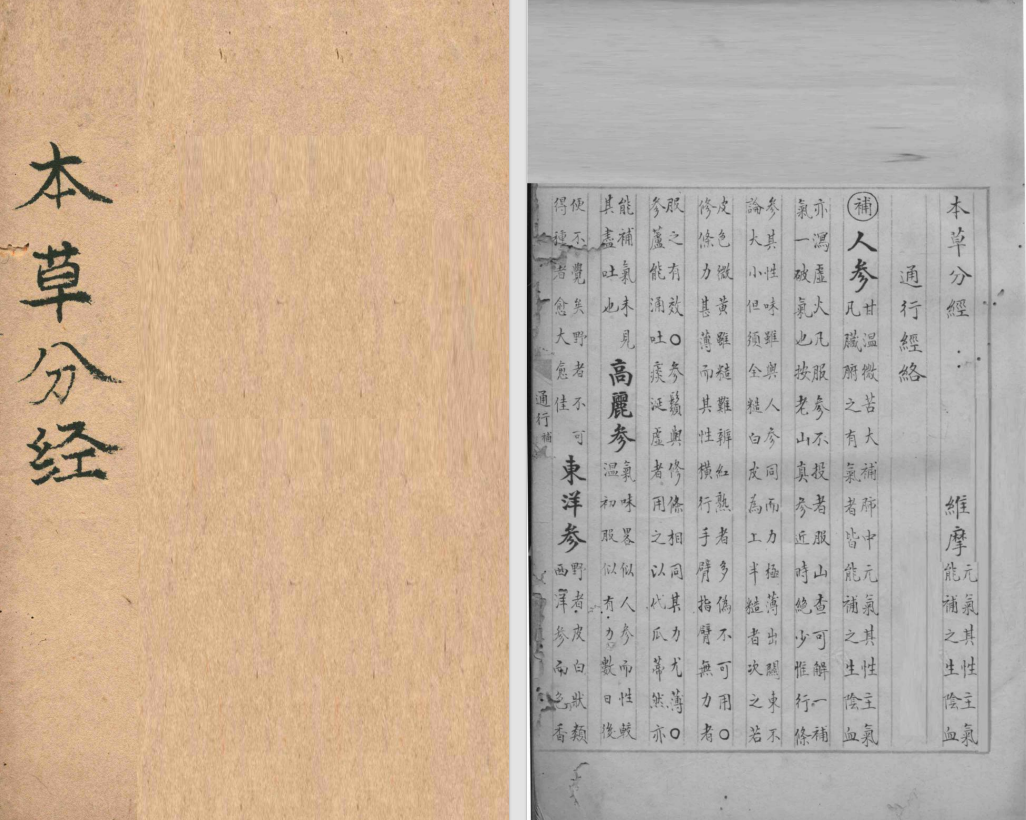 本草分经
本草分經
維摩
元氣其性主氣
能補之生陰血
通行經絡
補
人參
甘溫微苦大補肺中元氣其性主氣
凡臟腑之有氣者皆能補之生陰血
亦瀉虛火凡服參不投者服山查可解一補
氣一破氣也按老山真參近時絕少惟行條
參其性味雖與人參同而力極薄出關東不
論大小但須全糙白皮為上半糙者次之若
皮色微黃雖糙難辨紅熟者多偽不可用○
修條力甚薄而其性橫行手臂指臂無力者
服之有效○參鬚與修條相同其力尤薄○
參蘆能涌吐痰涎虛者用之以代瓜蒂然亦
能補氣未見
其盡吐也
高麗參
氣味畧似人參而性較
溫初服似有力數日後
便不覺矣野者不可
得種者愈大愈佳
東洋參
野者皮白狀類
西洋參而色香
通行
補